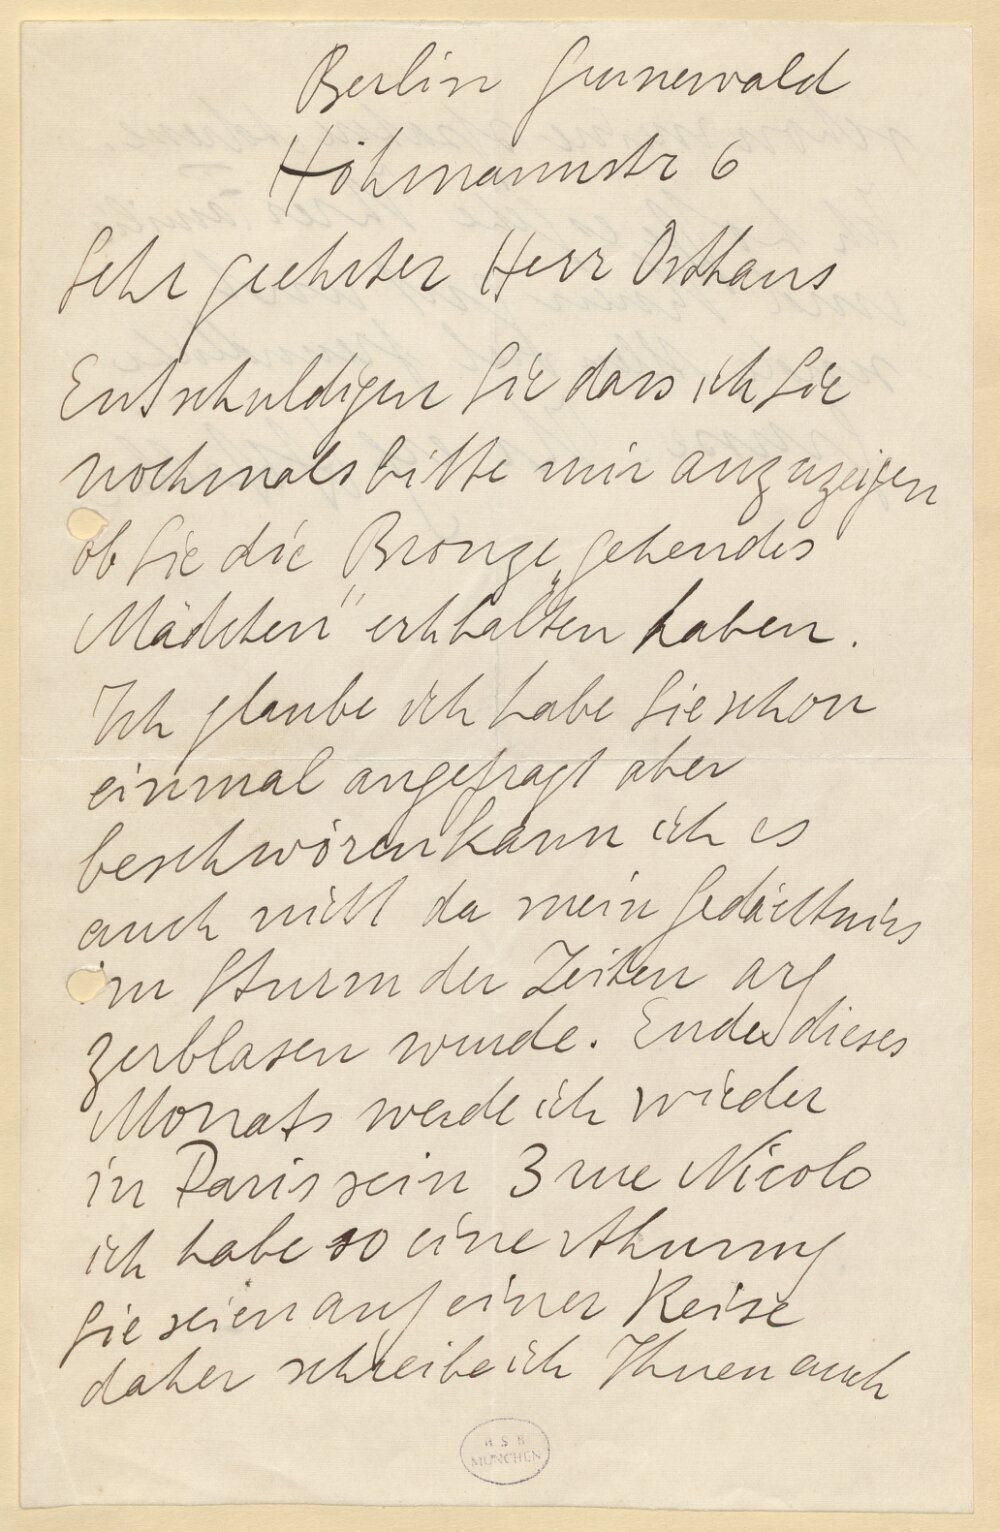 Berlin Grunewald
Höhmannstr 6
Sehr geehrter Herr Osthaus
Entschuldigen Sie dass ich Sie
nochmals bitte mir anzuzeigen
ob Sie die Bronze „gehendes
Mädchen" erhhalten haben.
Ich glaube ich habe Sie schon
einmal angefragt aber
beschwören kann ich es
auch nicht da mein Gedächtniss
im Sturm der Zeiten arg
zerblasen wurde. Ende dieses
Monats werde ich wieder
in Paris sein 3 rue Nicolo
ich habe so eine Ahnung
Sie seien auf einer Reise
daher schreibe ich Ihnen auch
BSB
MÜNCHEN